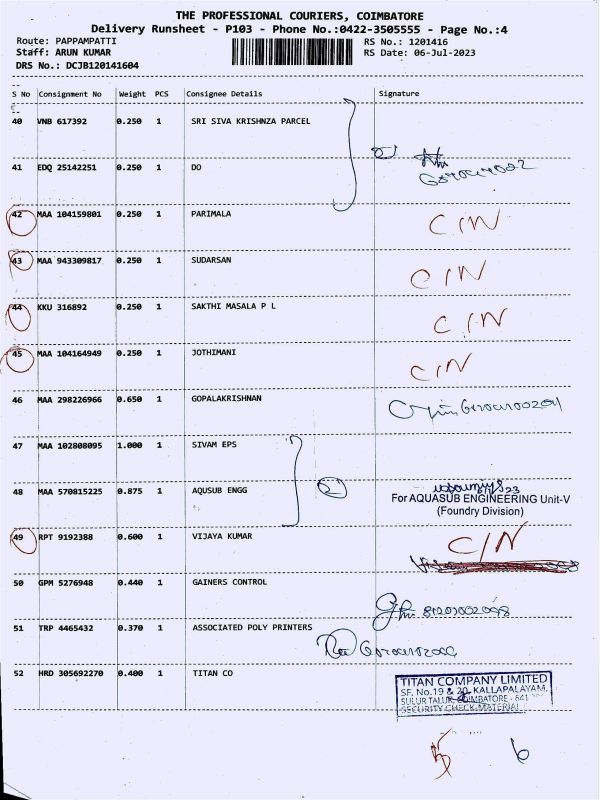 THE PROFESSIONAL COURIERS, COIMBATORE
Delivery Runsheet - P103 - Phone No.:0422-3505555 - Page No.:4
Route: PAPPAMPATTI RS No.: 1201416
Staff: ARUN KUMAR RS Date: 06-Jul-2023
DRS No.: DCJB120141604
S No Consignment No Weight PCS Consignee Details Signature
40 VNB 617392 0.250 1 SRI SIVA KRISHNZA PARCEL
41 EDQ 25142251 0.250 1 DO
42 MAA 104159801 0.250 1 PARIMALA C/N
43 MAA 943309817 0.250 1 SUDARSAN C/N
44 KKU 316892 0.250 1 SAKTHI MASALA P L C/N
45 MAA 104164949 0.250 1 JOTHIMANI C/N
46 MAA 298226966 0.650 1 GOPALAKRISHNAN
47 MAA 102808095 1.000 1 SIVAM EPS
48 MAA 570815225 0.875 1 AQUSUB ENGG 2
For AQUASUB ENGINEERING Unit-V
(Foundry Division)
49 RPT 9192388 0.600 1 VIJAYA KUMAR C/N
50 GPM 5276948 0.440 1 GAINERS CONTROL
51 TRP 4465432 0.370 1 ASSOCIATED POLY PRINTERS
52 HRD 305692270 0.400 1 TITAN CO
TITAN COMPANY LIMITED
SF. No.19 & 20, KALLAPALAYAM,
SULUR TALUK, COIMBATORE - 641
SECURITY CHECK MATERIAL
5 6